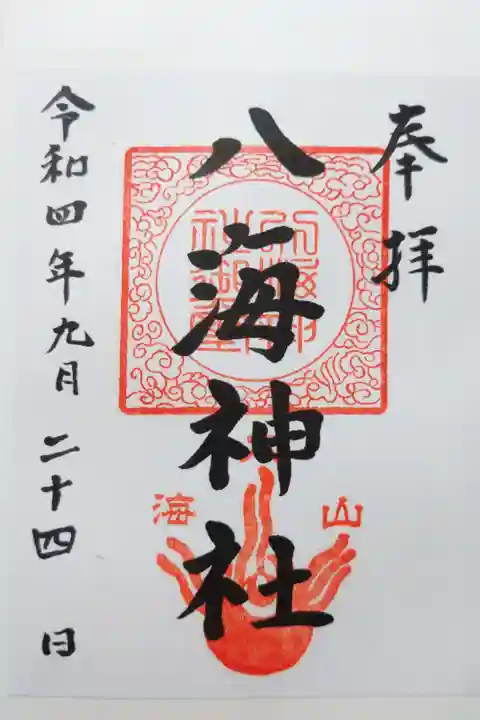 奉拝
八海神社
令和四年九月二十四日
山
海